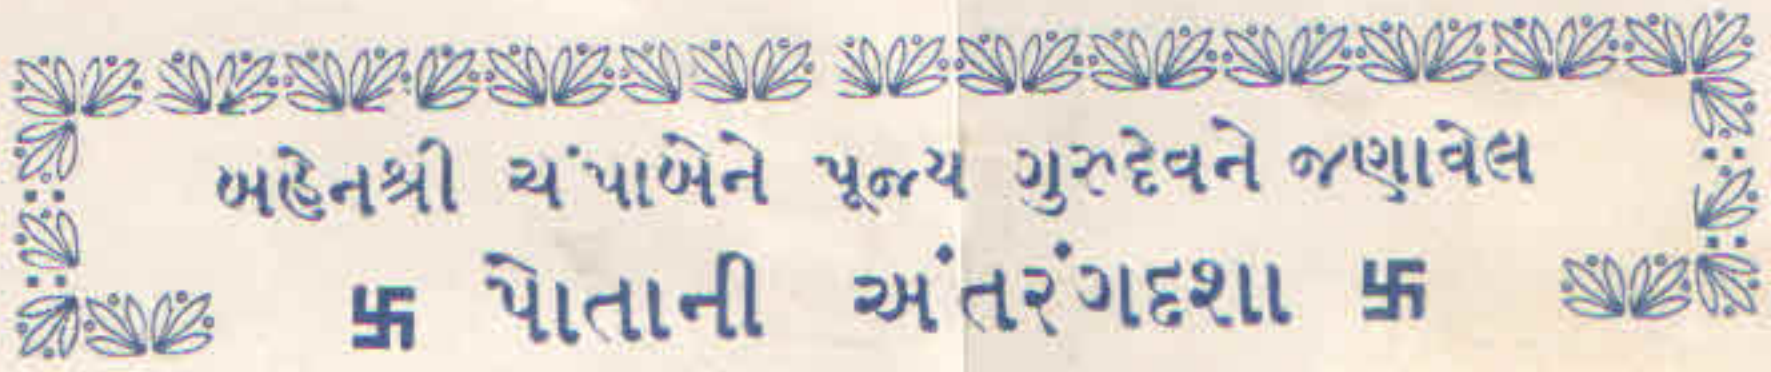 બહેનશ્રી ચંપાબેને પૂજ્ય ગુરુદેવને જણાવેલ
卐 પોતાની અંતરંગદશા 卐